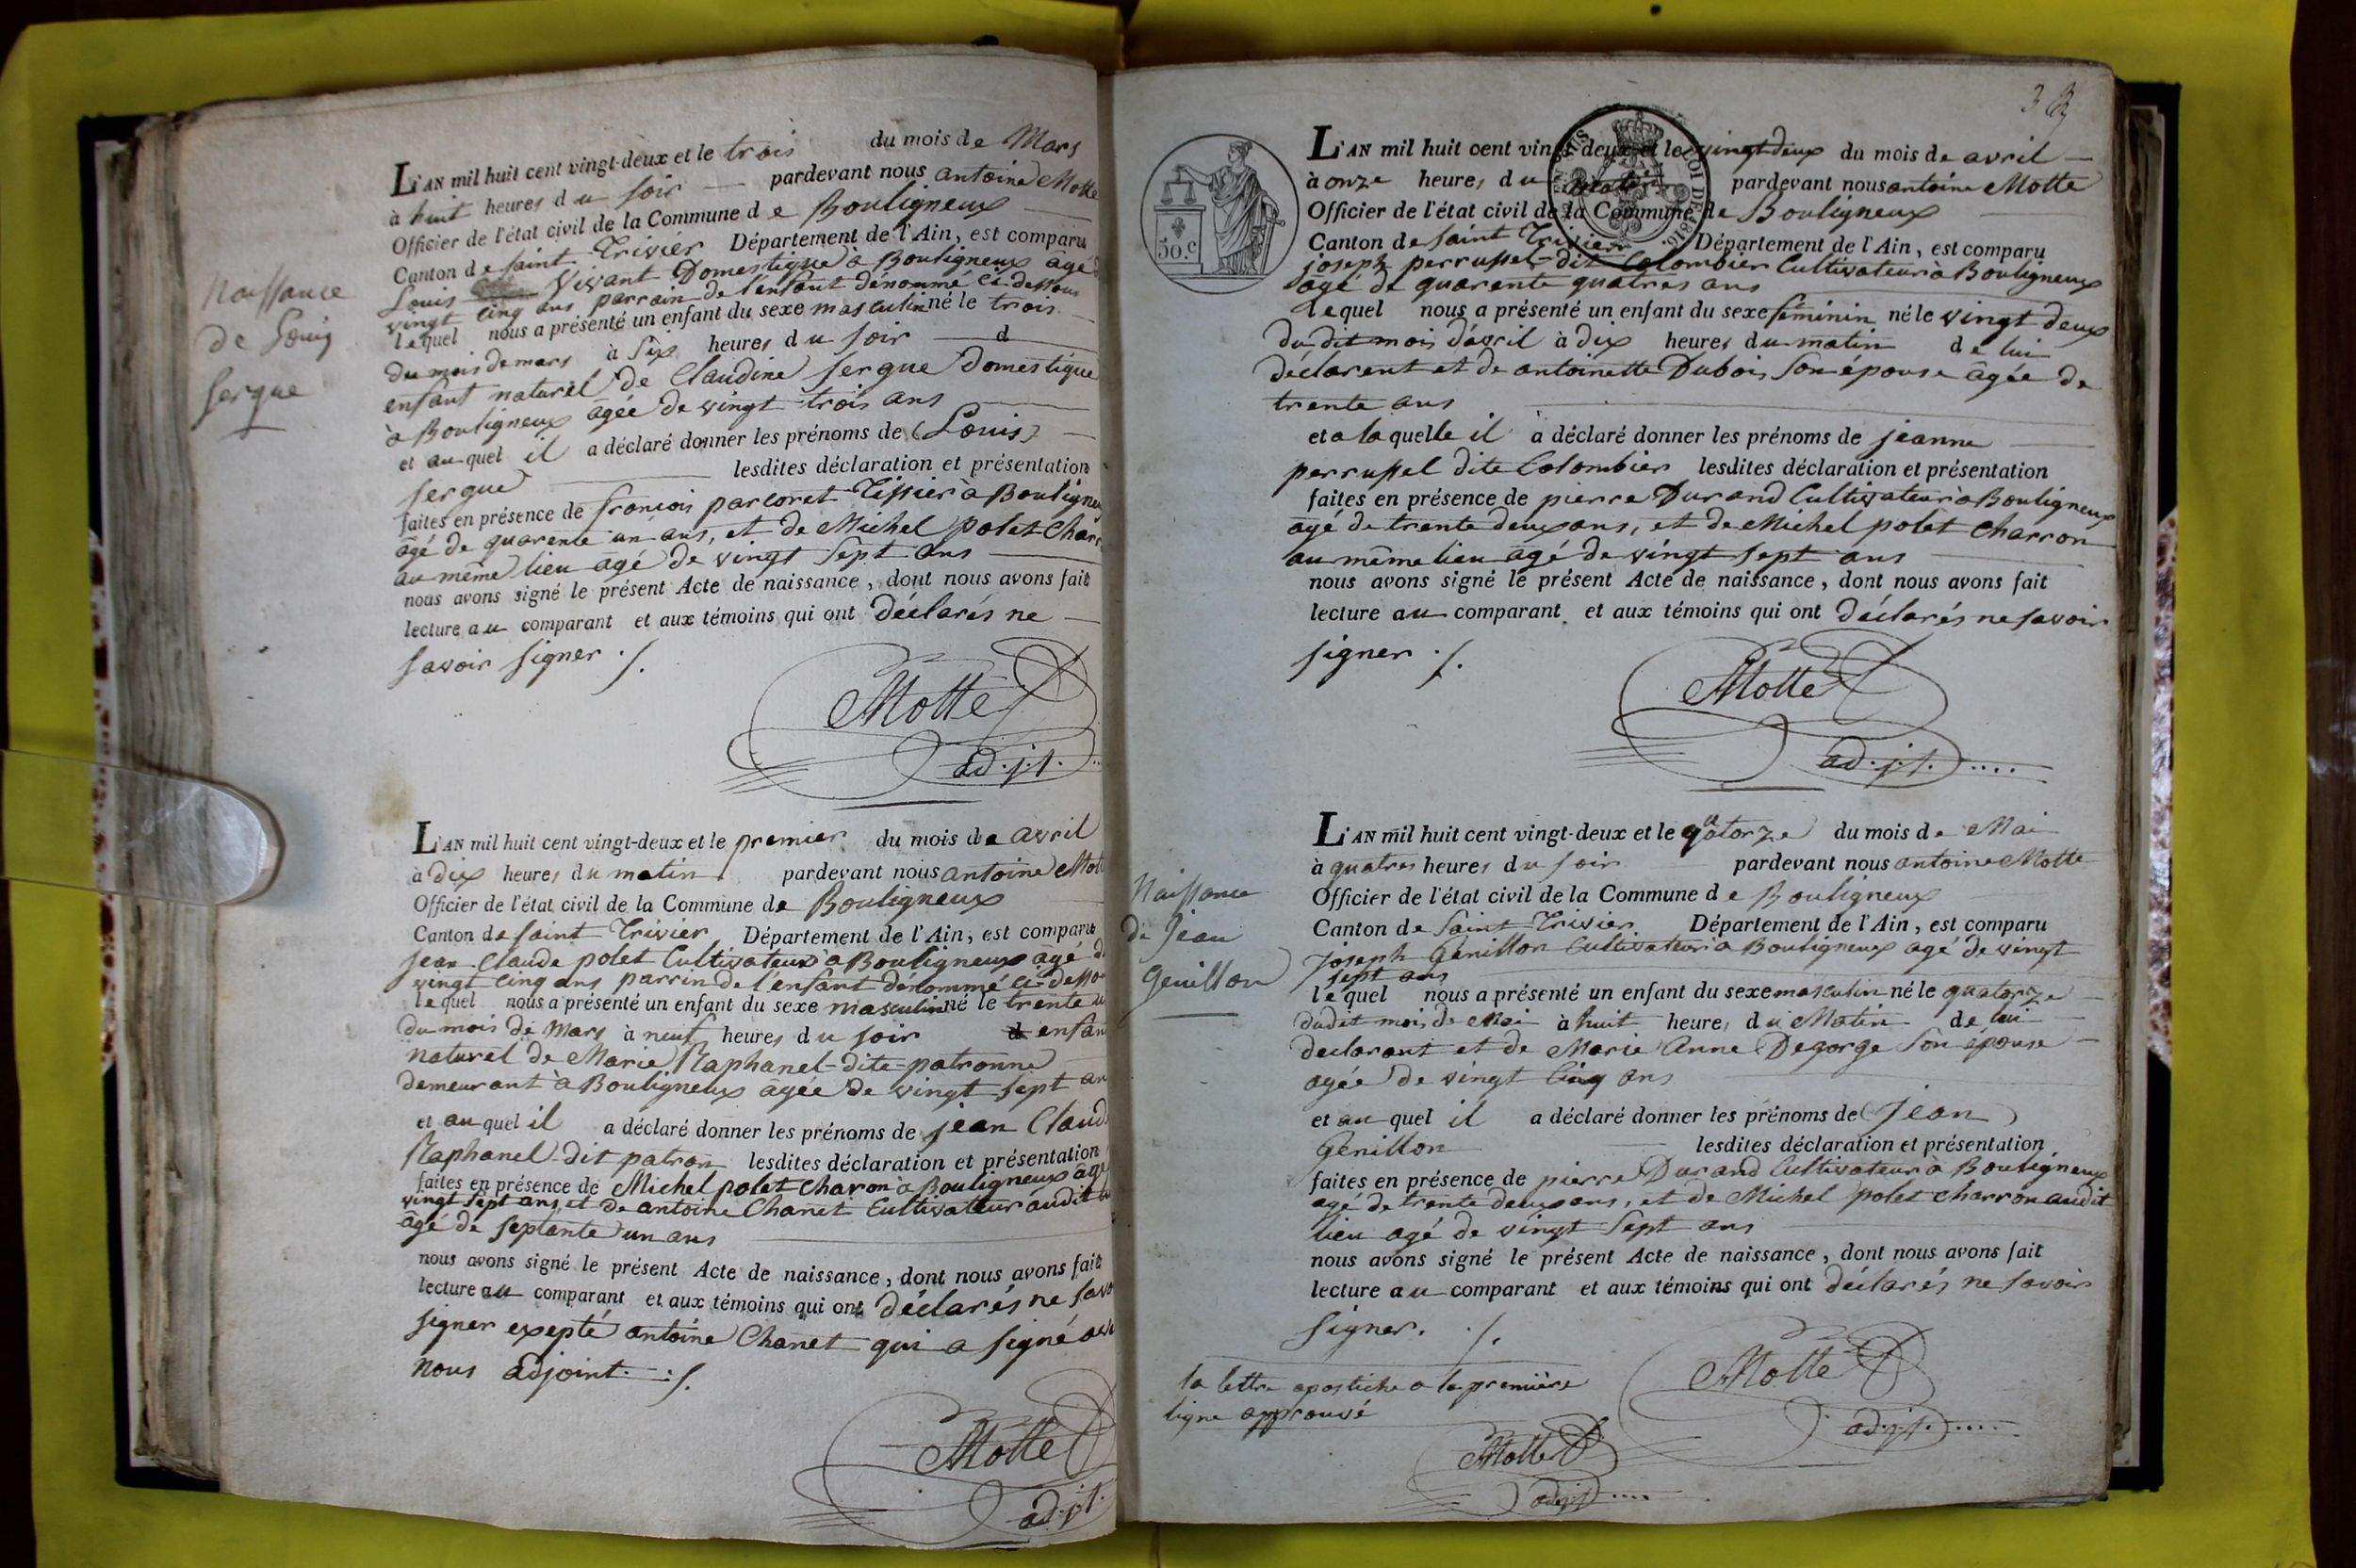 Naissance
de Louis
Sergue
L'AN mil huit cent vingt-deux et le trois du mois de Mars
à huit heures du soir pardevant nous antoine Motte
Officier de l'état civil de la Commune de Bouligneux
Canton de saint Trivier Département de l'Ain, est comparu
Louis Vivant Domestique à Bouligneux agé d
vingt cinq ans parrain de l'enfant dénommé ci-dessous
lequel nous a présenté un enfant du sexe masculin né le trois
du mois de mars à six heures du soir d
enfant naturel de Claudine sergue Domestique
à Bouligneux âgée de vingt trois ans
et auquel il a déclaré donner les prénoms de (Louis)
sergue lesdites déclaration et présentation
faites en présence de francois parcoret Tissier à Bouligneu
âgé de quarente un ans, et de Michel polet Charr
au même lieu agé de vingt sept ans
nous avons signé le présent Acte de naissance, dont nous avons fait
lecture au comparant et aux témoins qui ont déclarés ne
savoir signer ./.
Motte
ad.j.t.
L'AN mil huit cent vingt-deux et le premier du mois de avril
à dix heures du matin pardevant nous antoine Mott
Officier de l'état civil de la Commune de Bouligneux
Canton de saint Trivier Département de l'Ain, est comparu
jean Claude polet Cultivateur à Bouligneux âgé d
vingt cinq ans parrin de l'enfant dénommé ci-desso
lequel nous a présenté un enfant du sexe masculin né le trente u
du mois de Mars à neuf heures du soir d enfan
naturel de Marie Raphanel-dite-patronne
demeurant à Bouligneux âgée de vingt sept an
et auquel il a déclaré donner les prénoms de jean Claud
Raphanel-dit patron lesdites déclaration et présentation
faites en présence de Michel polet charon à Bouligneux agé
vingt sept ans, et de antoine Chanet Cultivateur audit
âgé de septante un ans
nous avons signé le présent Acte de naissance, dont nous avons fait
lecture au comparant et aux témoins qui ont déclarés ne savo
signer exepté antoine Chanet qui a signé ave
nous adjoint. ./.
Motte
ad.j.t.
50.c
LOI DE 1816.
L'AN mil huit cent vingt-deux et le vingt deux du mois de avril
à onze heures du matin pardevant nous antoine Motte
Officier de l'état civil de la Commune de Bouligneux
Canton de saint Trivier Département de l'Ain, est comparu
joseph perrussel-dit Colombier Cultivateur à Bouligneux
âgé de quarente quatres ans
lequel nous a présenté un enfant du sexe féminin né le vingt deux
du dit mois d'avril à dix heures du matin de lui
déclarent et de antoinette Dubois son épouse âgée de
trente ans
et a laquelle il a déclaré donner les prénoms de jeanne
perrussel dite Colombier lesdites déclaration et présentation
faites en présence de pierre Durand Cultivateur a Bouligneux
âgé de trente deux ans, et de Michel polet Charron
au même lieu âgé de vingt sept ans
nous avons signé le présent Acte de naissance, dont nous avons fait
lecture au comparant et aux témoins qui ont déclarés ne savoir
signer ./.
Motte
ad.j.t.....
Naissance
de Jean
Genillon
L'AN mil huit cent vingt-deux et le quatorze du mois de Mai
à quatres heures du soir pardevant nous antoine Motte
Officier de l'état civil de la Commune de Bouligneux
Canton de Saint Trivier Département de l'Ain, est comparu
Joseph Génillon Cultivateur a Bouligneux agé de vingt
sept ans
lequel nous a présenté un enfant du sexe masculin né le quatorze
dudit mois de Mai à huit heures du Matin de lui
declarant et de Marie Anne Degorge son épouse
agée de vingt cinq ans
et auquel il a déclaré donner les prénoms de (Jean)
Génillon lesdites déclaration et présentation
faites en présence de pierre Durand Cultivateur à Bouligneux
agé de trente deux ans, et de Michel polet charron audit
lieu agé de vingt sept ans
nous avons signé le présent Acte de naissance, dont nous avons fait
lecture au comparant et aux témoins qui ont déclarés ne savoir
signer. ./.
la lettre apostiche a la première
ligne approuvé
Motte
ad.j.t.....
Motte
adjt....